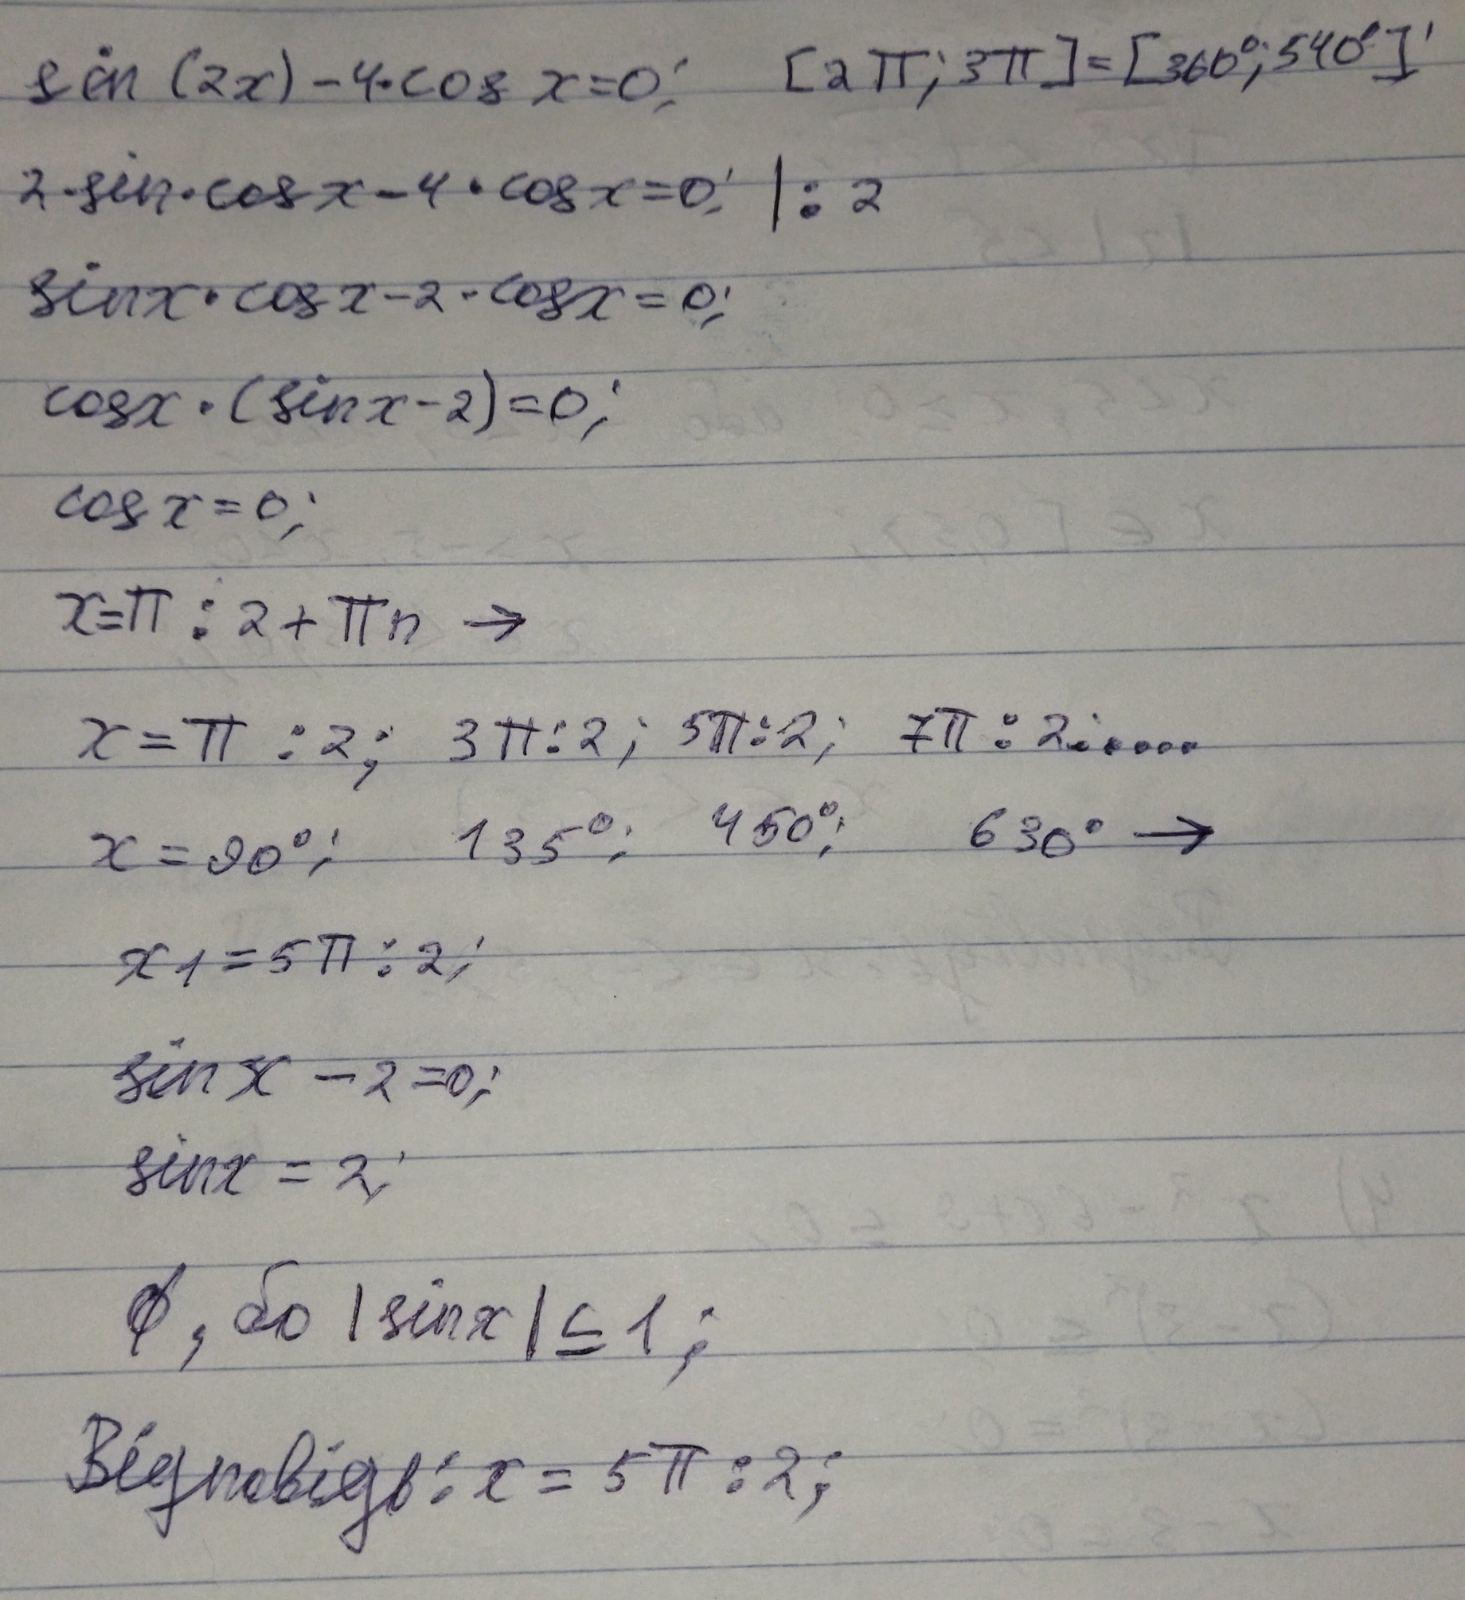 sin (2x) - 4·cos x = 0; [2π; 3π] = [360°; 540°]'
2·sin·cos x - 4·cos x = 0; | : 2
sin x · cos x - 2 · cos x = 0;
cos x · (sin x - 2) = 0;
cos x = 0;
x = π : 2 + πn →
x = π : 2; 3π : 2; 5π : 2; 7π : 2; .....
x = 90°; 135°; 450°; 630° →
x1 = 5π : 2;
sin x - 2 = 0;
sin x = 2;
∅, бо |sin x| ≤ 1;
Відповідь: x = 5π : 2;